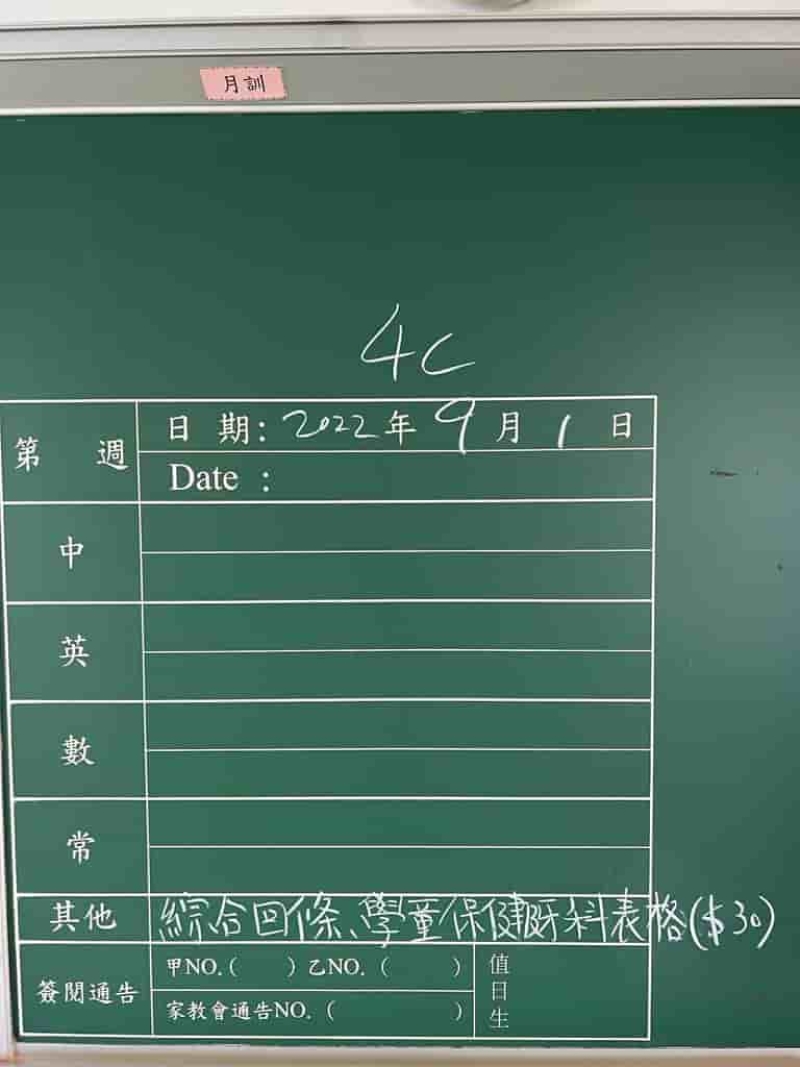 月訓
4C
第 週
日 期：2022年 9月 1 日
Date ：
中
英
數
常
其他 綜合回條、學童保健牙科表格($30)
簽閱通告
甲NO.( ) 乙NO. ( )
家教會通告NO. ( )
值日生